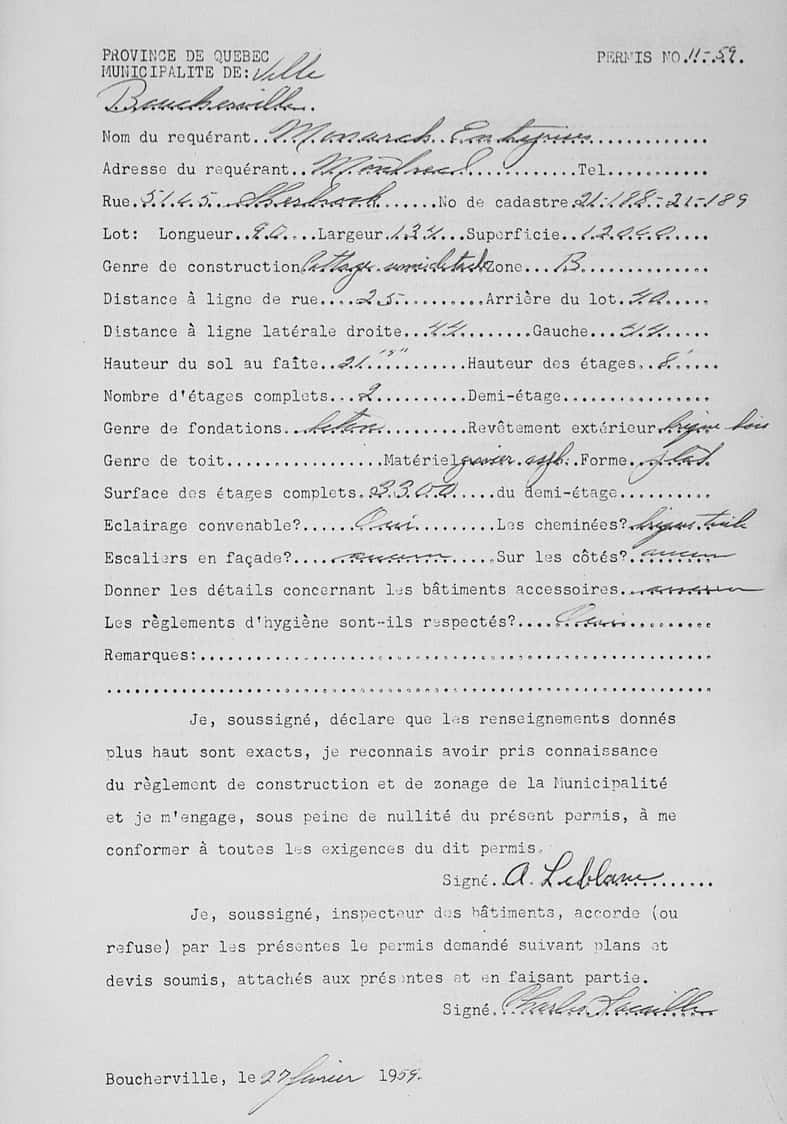 PROVINCE DE QUEBEC PERMIS NO. 11-59.
MUNICIPALITE DE: Ville
Boucherville.
Nom du requérant.. Monarch Enterprises
Adresse du requérant.. Montreal Tel.
Rue. 5145 No de cadastre. 21-188-21-189
Lot: Longueur.. 90 Largeur. 134 Superficie..
Genre de construction Cottage semi detach Zone... B
Distance à ligne de rue.... 25 Arrière du lot. 40
Distance à ligne latérale droite... 44 Gauche... 44
Hauteur du sol au faîte.. 21' Hauteur des étages.. 8'
Nombre d'étages complets... 2 Demi-étage
Genre de fondations.. béton Revêtement extérieur brique bois
Genre de toit Matériel gravier asph. Forme. plat
Surface des étages complets. 3300 du demi-étage
Eclairage convenable? Oui Les cheminées? brique
Escaliers en façade? aucun Sur les côtés? aucun
Donner les détails concernant les bâtiments accessoires.. aucun
Les règlements d'hygiène sont-ils respectés? Oui
Remarques:
Je, soussigné, déclare que les renseignements donnés
plus haut sont exacts, je reconnais avoir pris connaissance
du règlement de construction et de zonage de la Municipalité
et je m'engage, sous peine de nullité du présent permis, à me
conformer à toutes les exigences du dit permis.
Signé. A. Leblanc
Je, soussigné, inspecteur des bâtiments, accorde (ou
refuse) par les présentes le permis demandé suivant plans et
devis soumis, attachés aux présentes et en faisant partie.
Signé. Charles
Boucherville, le 27 février 1959.